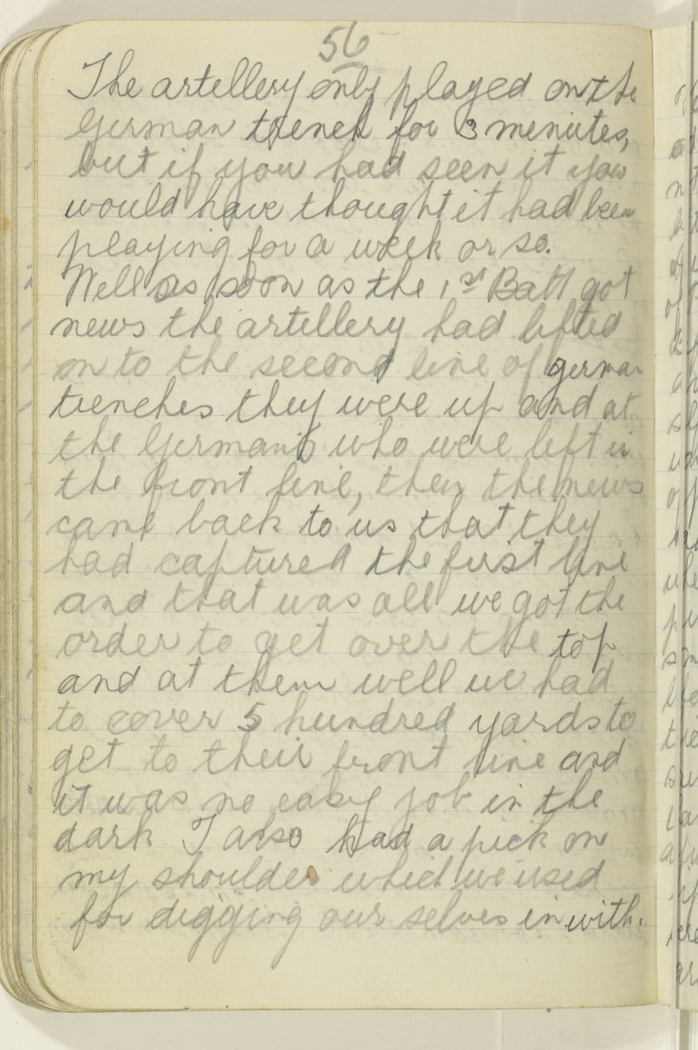 56
The artillery only played on the
German trench for 3 meniutes,
but if you had seen it you
would have thought it had been
playing for a week or so.
Well as soon as the 1st Batt got
news the artillery had lifted
on to the second line of german
trenches they were up and at
the Germans who were left in
the front line, then the news
came back to us that they
had captured the first line
and that was all we got the
order to get over the top
and at them well we had
to cover 5 hundred yards to
get to their front line and
it was no easy job in the
dark I also had a pick on
my shoulder which we used
for digging our selves in with.